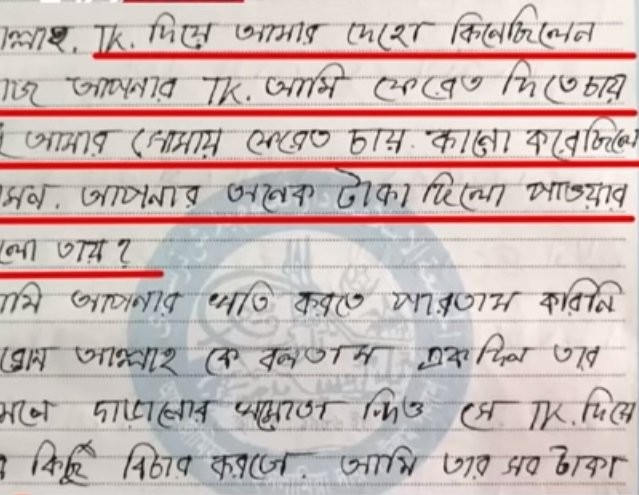 ল্লাহ. TK. দিয়ে আমার দেহো কিনেছিলেন
জ আপনার TK. আমি ফেরেত দিতে চায়
আমার সোমায় ফেরেত চায়. কানো করেছিলে
মন. আপনার অনেক টাকা ছিলো পাওয়ার
লো তায় ?
মি আপনার খতি করতে পারতাম করিনি
আল্লাহ কে বলতাম এক দিন তার
দারানোর খমোতা দিও সে TK. দিয়ে
কিছু বিচার করতে. আমি তার সব টাকা